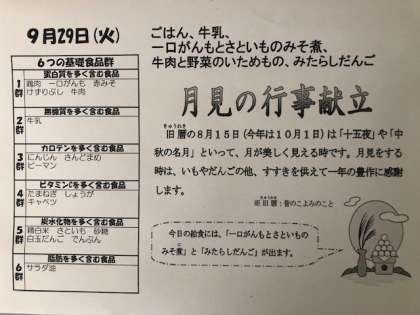 9月29日(火)
6つの基礎食品群
蛋白質を多く含む食品
1群
鶏肉 一口がんも 赤みそ
けずりぶし 牛肉
無機質を多く含む食品
2群
牛乳
カロテンを多く含む食品
3群
にんじん さんどまめ
ピーマン
ビタミンCを多く含む食品
4群
たまねぎ しょうが
キャベツ
炭水化物を多く含む食品
5群
精白米 さといも 砂糖
白玉だんご でんぷん
脂肪を多く含む食品
6群
サラダ油
ごはん、牛乳、
一口がんもとさといものみそ煮、
牛肉と野菜のいためもの、みたらしだんご
月見の行事献立
きゅうれき
旧暦の8月15日(今年は10月1日)は「十五夜」や「中
秋の名月」といって、月が美しく見える時です。月見をする
時は、いもやだんごの他、すすきを供えて一年の豊作に感謝
します。
きゅうれき
※旧暦:昔のこよみのこと
今日の給食には、「一口がんもとさといもの
みそ煮」と「みたらしだんご」が出ます。